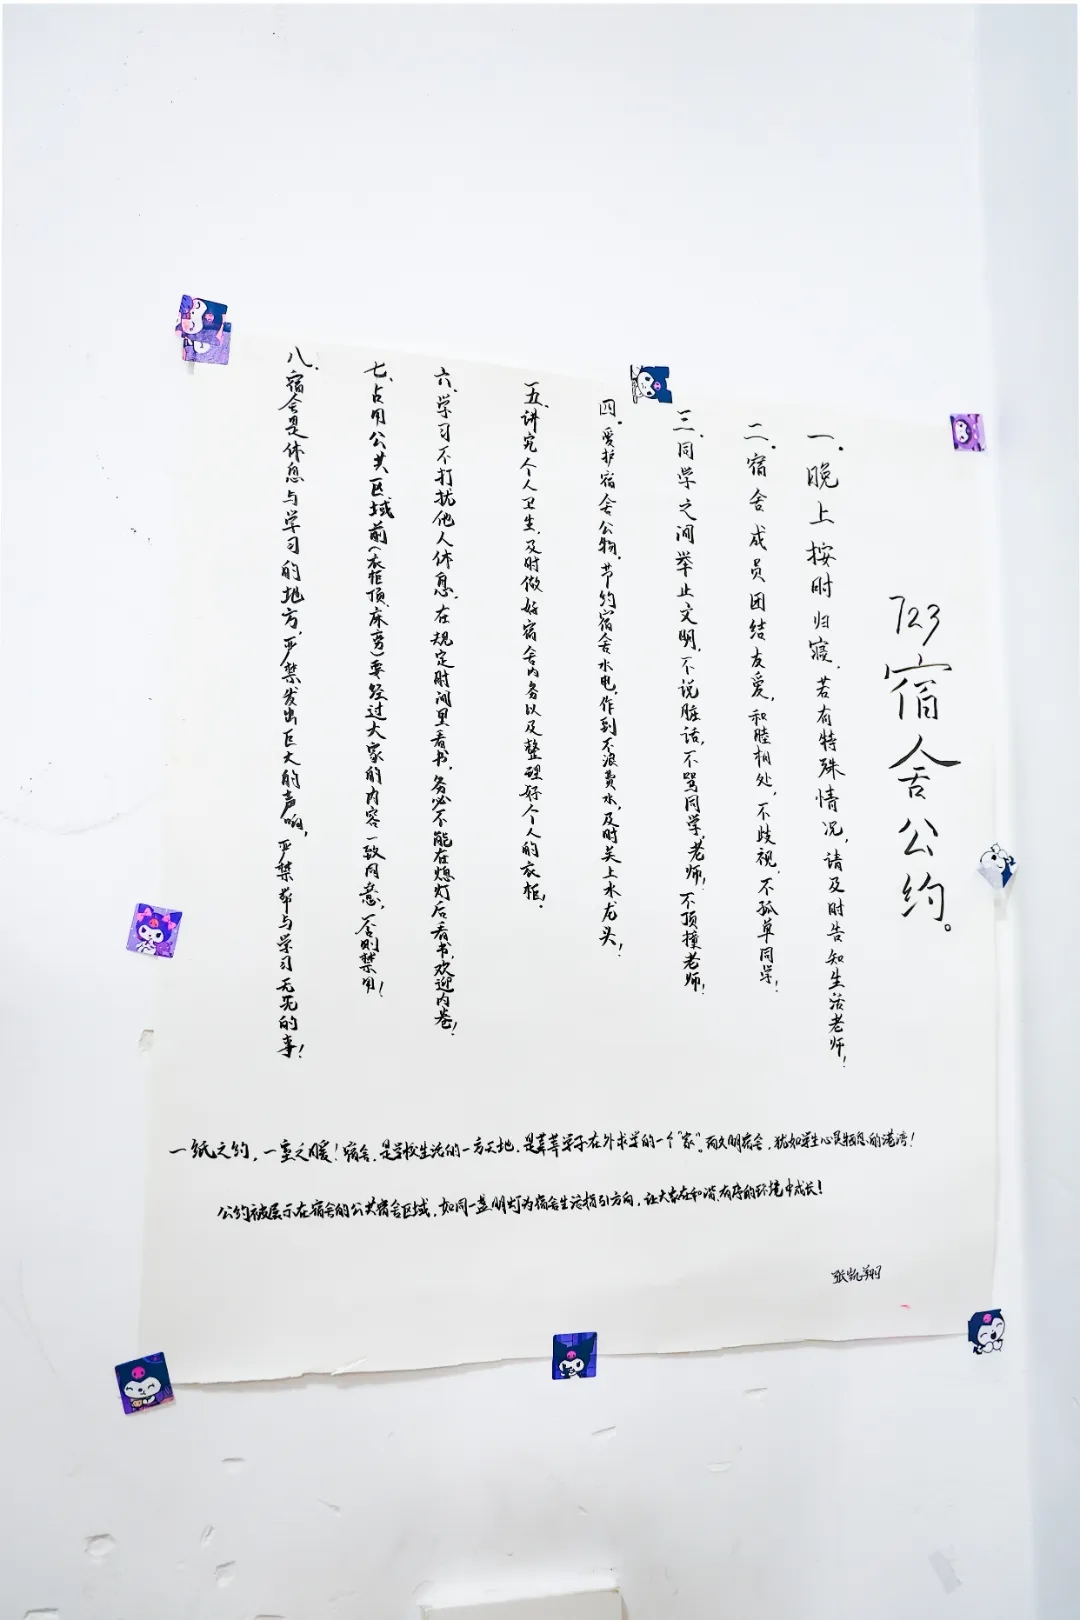 723宿舍公约。
一.晚上按时归寝.若有特殊情况,请及时告知生活老师!
二.宿舍成员团结友爱,和睦相处,不歧视.不孤草同学!
三.同学之间举止文明.不说脏话,不骂同学,老师,不顶撞老师!
四.爱护宿舍公物.节约宿舍水电,作到不浪费水,及时关上水龙头!
五.讲究个人卫生.及时做好宿舍内务以及整理好个人的衣柜!
六.学习不打扰他人休息.在规定时间里看书.务必不能在熄灯后看书,欢迎内卷!
七.占用公共区域前(衣柜顶.床旁)要经过大家的内容一致同意,否则禁用!
八.宿舍是休息与学习的地方,严禁发出巨大的声响,严禁带与学习无关的事!
一纸之约,一室之暖!宿舍,是学校生活的一方天地,是莘莘学子在外求学的一个“家”。而文明宿舍,犹如学生心灵栖息的港湾!
公约被展示在宿舍的公共宿舍区域,如同一盏明灯为宿舍生活指引方向,让大家在和谐.有序的环境中成长!
张凯翔